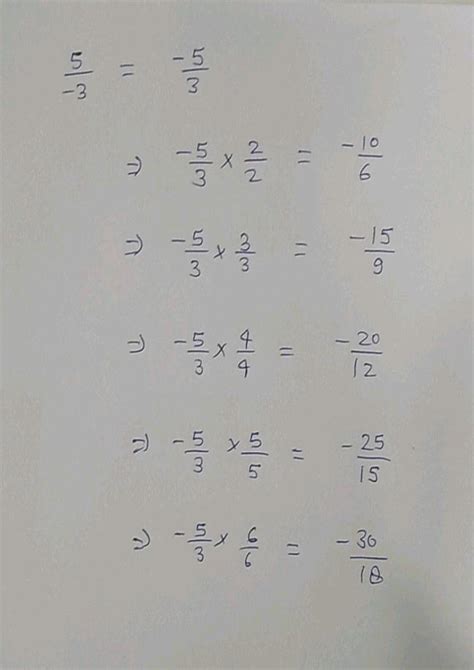 5/-3 = -5/3
⇒ -5/3 × 2/2 = -10/6
⇒ -5/3 × 3/3 = -15/9
⇒ -5/3 × 4/4 = -20/12
⇒ -5/3 × 5/5 = -25/15
⇒ -5/3 × 6/6 = -30/18